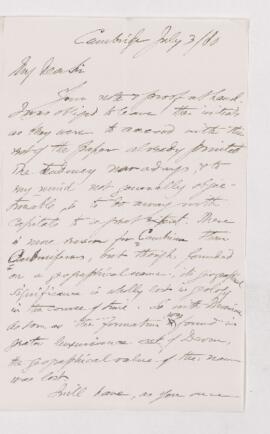 Cambridge July 3/80
My dear Sir
Your note & proof at hand.
I was obliged to leave the initials
as they were to accord with the
rest of the paper already printed
The tendency now adays, & to
my mind not generally objec-
tionable, is to do away with
capitals to a great extent. There
is more reason for Cambrian than
Carboniferous, but though founded
on a geographical name, its geographical
significance is wholly lost in geology
in the course of time. So with Devonian
as soon as the formation was found in
greater luxuriance out of Devon,
the geographical value of the name
was lost
I will have, as you